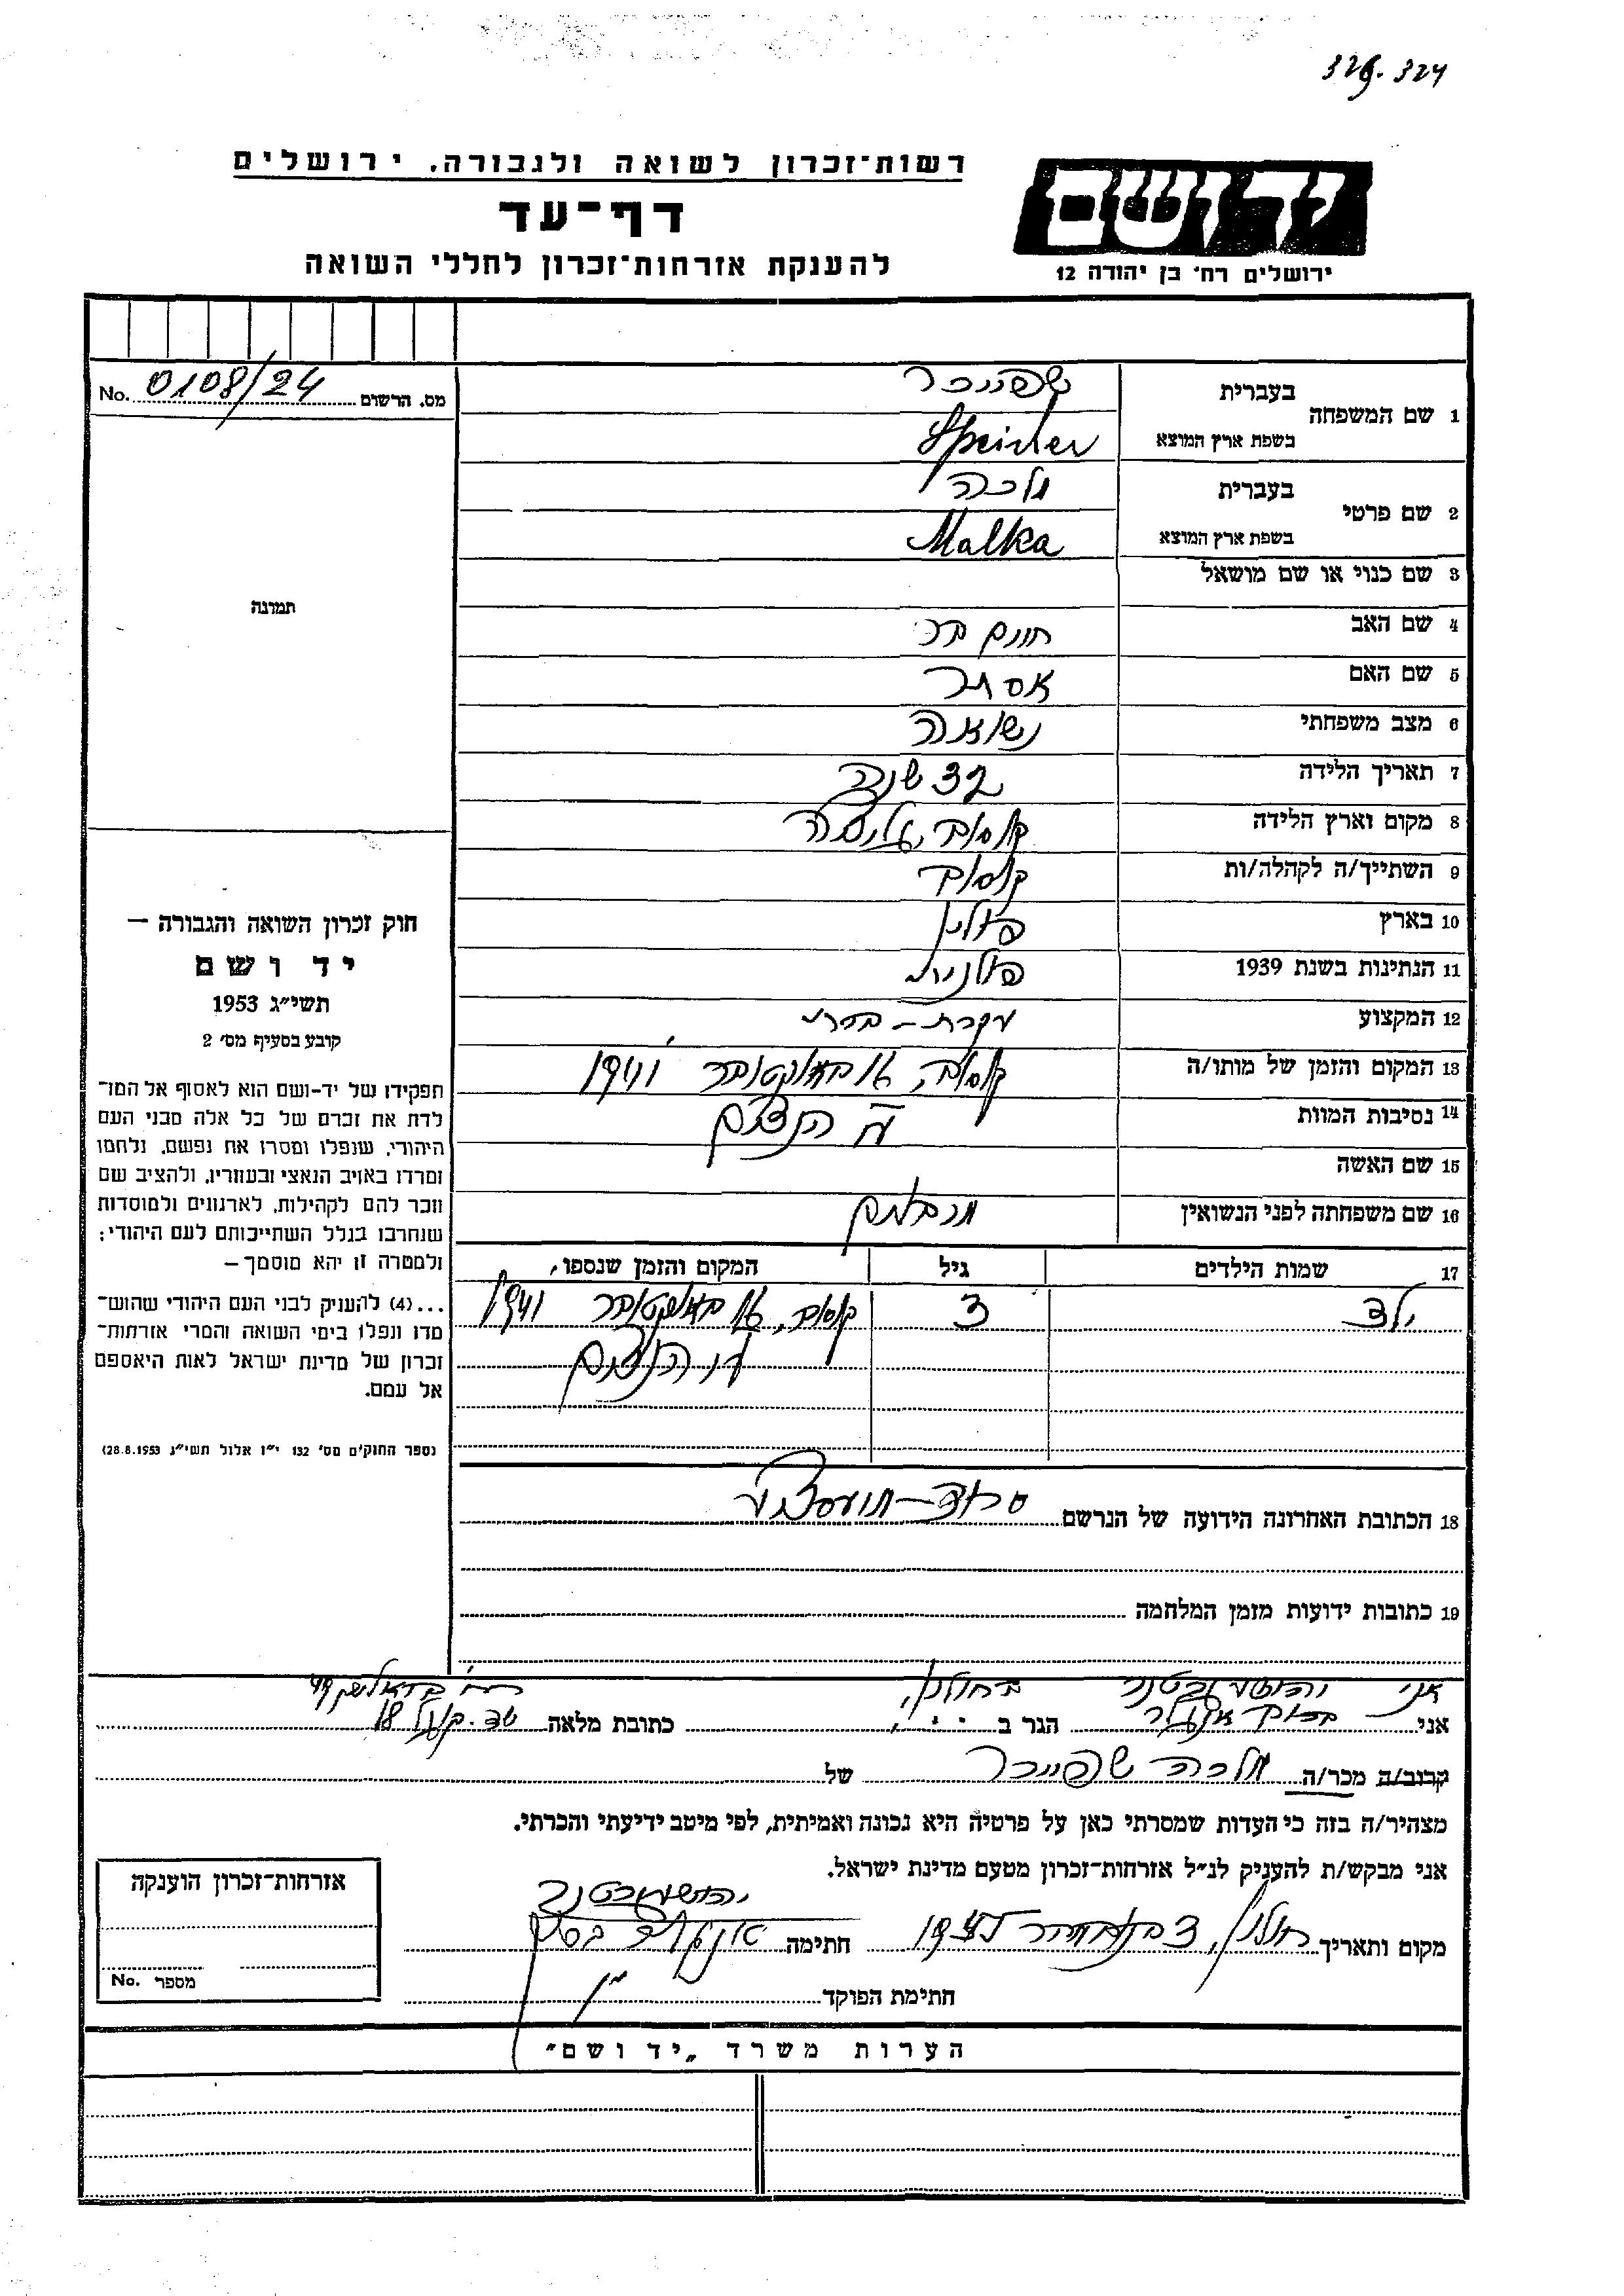 329. 324
רשות־זכרון לשואה ולגבורה. ירושלים
דף־עד
להענקת אזרחות־זכרון לחללי השואה
יד ושם
ירושלים רח׳ בן יהודה 12
מס. הרשום 0108/24 No.
1 שם המשפחה
בעברית שפייכר
בשפת ארץ המוצא Speicher
2 שם פרטי
בעברית מלכה
בשפת ארץ המוצא Malka
3 שם כנוי או שם מושאל
תמונה
4 שם האב חיים
5 שם האם אסתר
6 מצב משפחתי נשואה
7 תאריך הלידה 32 שנה
8 מקום וארץ הלידה קוסוב, גליציה
9 השתייך/ה לקהלה/ות קוסוב
10 בארץ פולין
11 הנתינות בשנת 1939 פולנית
12 המקצוע עקרת־בית
13 המקום והזמן של מותו/ה קוסוב, 16 באוקטובר 1941
14 נסיבות המוות ע״י הנאצים
15 שם האשה
16 שם משפחתה לפני הנשואין
17 שמות הילדים גיל המקום והזמן שנספו
ילד 3 קוסוב, 16 באוקטובר 1941
ע״י הנאצים
חוק זכרון השואה והגבורה —
יד ושם
תשי״ג 1953
קובע בסעיף מס׳ 2
תפקידו של יד-ושם הוא לאסוף אל המו־
לדת את זכרם של כל אלה מבני העם
היהודי, שנפלו ומסרו את נפשם, נלחמו
ומרדו באויב הנאצי ובעוזריו, ולהציב שם
וזכר להם לקהילות, לארגונים ולמוסדות
שנחרבו בגלל השתייכותם לעם היהודי;
ולמטרה זו יהא מוסמך —
...(4) להעניק לבני העם היהודי שהוש־
מדו ונפלו בימי השואה והמרי אזרחות־
זכרון של מדינת ישראל לאות היאספם
אל עמם.
(ספר החוקים מס׳ 132 י״ז אלול תשי״ג 28.8.1953)
18 הכתובת האחרונה הידועה של הנרשם
19 כתובות ידועות מזמן המלחמה
אני בחולון,
אני הגר ב כתובת מלאה 18
קרוב/ה מכר/ה מלכה שפייכר של
מצהיר/ה בזה כי העדות שמסרתי כאן על פרטיה היא נכונה ואמיתית, לפי מיטב ידיעתי והכרתי.
אני מבקש/ת להעניק לנ״ל אזרחות־זכרון מטעם מדינת ישראל.
מקום ותאריך חולון, חתימה
חתימת הפוקד
אזרחות־זכרון הוענקה
מספר No.
הערות משרד „יד ושם״